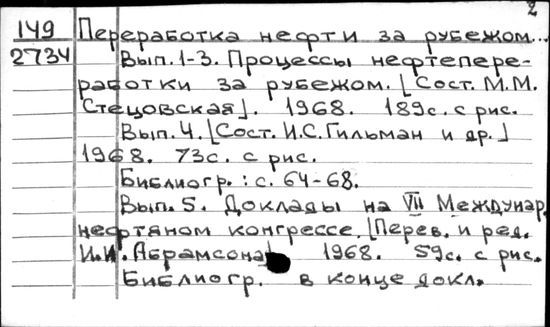 2
149 Переработка нефти за рубежом...
2734 Вып. 1-3. Процессы нефтепере-
работки за рубежом. [Сост. М.М.
Стецовская]. 1968. 189с. с рис.
Вып. 4. [Сост. И.С. Гильман и др.]
1968. 73с. с рис.
Библиогр.: с. 64-68.
Вып. 5. Доклады на VII Междунар.
нефтяном конгрессе. [Перев. и ред.
И.И. Абрамсона] 1968. 59с. с рис.
Библиогр. в конце докл.